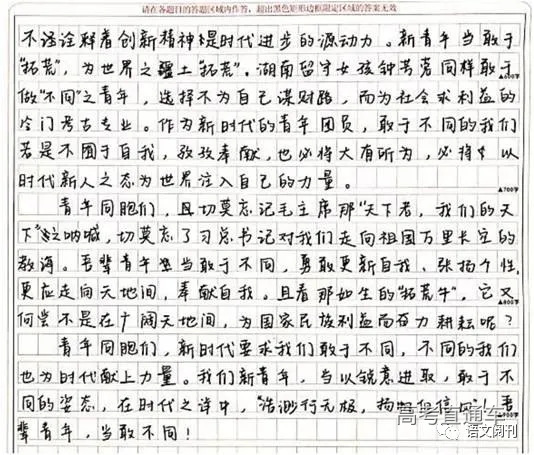 请在各题目的答题区域内作答，超出黑色矩形边框限定区域的答案无效
不诠释着创新精神是时代进步的源动力。新青年当敢于
“拓荒”，为世界之疆土“拓荒”。湖南留守女孩钟芳蓉同样敢于
▲600字
做“不同”之青年，选择不为自己谋财路，而为社会求利益的
冷门考古专业。作为新时代的青年团员，敢于不同的我们
若是不囿于自我，孜孜奉献，也必将大有所为，必将以
时代新人之态为世界注入自己的力量。
▲700字
青年同胞们，且切莫忘记毛主席那“天下者，我们的天
下”之呐喊，切莫忘了习总书记对我们走向祖国万里长空的
教诲。吾辈青年当敢于不同，勇敢更新自我、张扬个性，
更应走向天地间，奉献自我。且看那如生的“拓荒牛”，它又
▲800字
何尝不是在广阔天地间，为国家民族利益而奋力耕耘呢？
青年同胞们，新时代要求我们敢于不同，不同的我们
也为时代献上力量。我们新青年，当以锐意进取，敢于不
同的姿态，在时代之洋中，“浩渺行无极，扬帆但信风”！吾
▲900字
辈青年，当敢不同！
高考直通车
语文阅刊